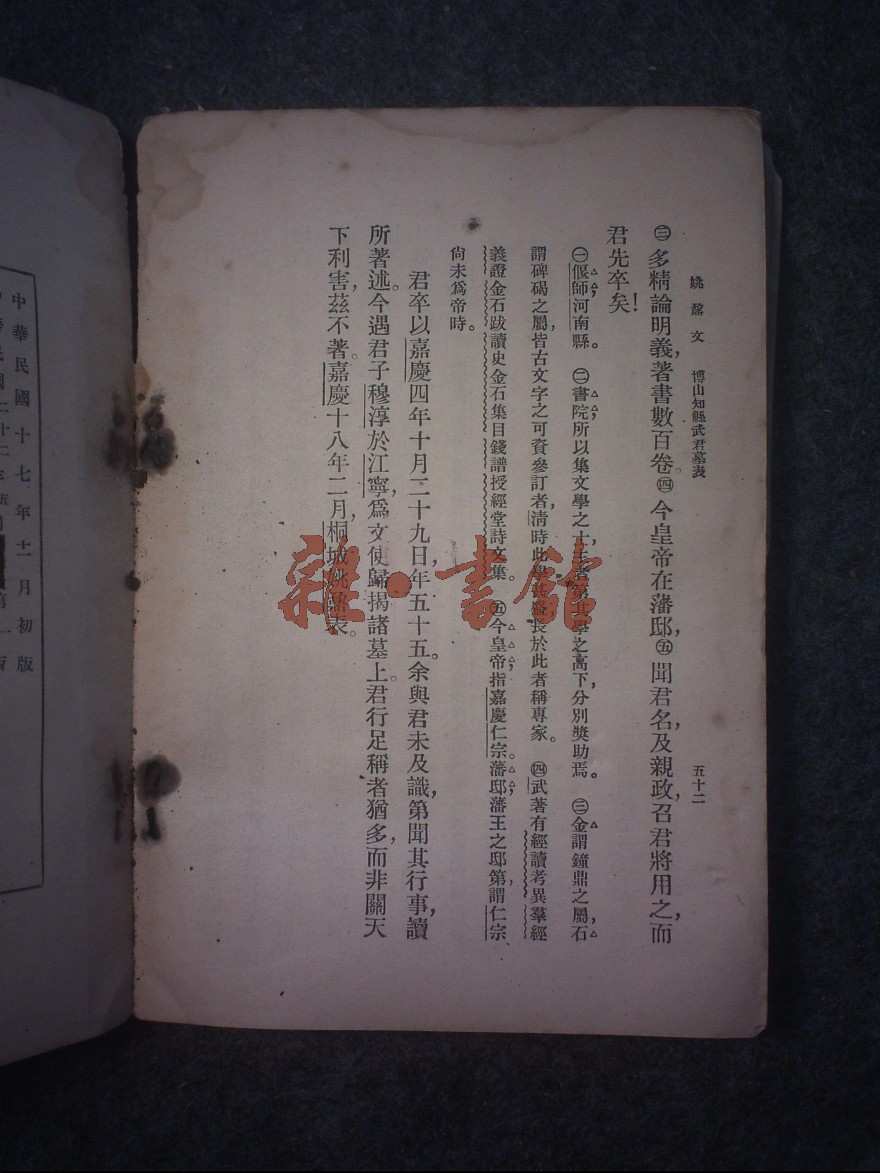 姚鼐文　博山知縣武君墓表　五十二
㊂多精論明義，著書數百卷。㊃今皇帝在藩邸，㊄聞君名，及親政，召君將用之，而
君先卒矣！
㊀偃師，河南縣。㊁書院，所以集文學之士，
者，第其學之高下，分別獎助焉。㊂金謂鐘鼎之屬，石
謂碑碣之屬，皆古文字之可資參訂者，清時此學
長於此者稱專家。㊃武著有經讀考異羣經
義證金石跋讀史金石集目錢譜授經堂詩文集。㊄今皇帝，指嘉慶仁宗。藩邸，藩王之邸第，謂仁宗
尙未爲帝時。
君卒以嘉慶四年十月二十九日，年五十五。余與君未及識，第聞其行事，讀
所著述。今遇君子穆淳於江寧，爲文使歸揭諸墓上。君行足稱者猶多，而非關天
下利害，茲不著。嘉慶十八年二月，桐城姚鼐表。
雜·書館
中華民國十七年十一月初版